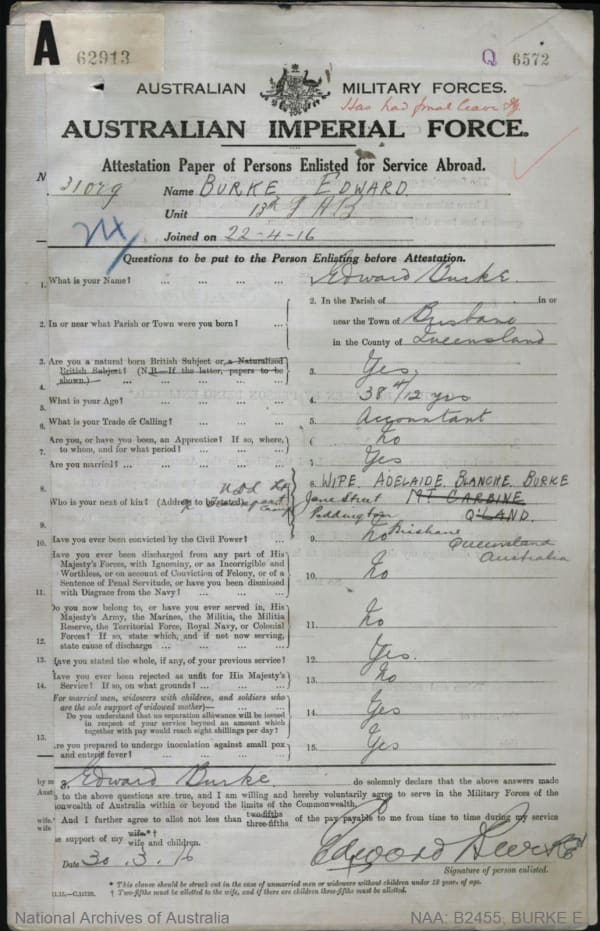 A 62913
Q 6572
AUSTRALIAN MILITARY FORCES.
Has had final leave
AUSTRALIAN IMPERIAL FORCE.
Attestation Paper of Persons Enlisted for Service Abroad.
N 31029 Name BURKE EDWARD
Unit 13th F A B
Joined on 22-4-16
Questions to be put to the Person Enlisting before Attestation.
1. What is your Name? ... ... ... ... Edward Burke.
2. In or near what Parish or Town were you born? ... 2. In the Parish of in or
near the Town of Brisbane
in the County of Queensland
3. Are you a natural born British Subject or a Naturalised
British Subject? (N.B.—If the latter, papers to be
shown.)— ... ... ... ... 3. Yes.
4. What is your Age? ... ... ... 4. 38 4/12 yrs
5. What is your Trade or Calling? ... ... ... 5. Accountant
6. Are you, or have you been, an Apprentice? If so, where,
to whom, and for what period? ... ... ... 6. No
7. Are you married? ... ... ... ... 7. Yes
8. Who is your next of kin? (Address to be stated) 8. WIFE. ADELAIDE. BLANCHE. BURKE
Jane Street MT CARBINE
Paddington Q'LAND.
Brisbane
Queensland
Australia
9. Have you ever been convicted by the Civil Power? ... 9. No
10. Have you ever been discharged from any part of His
Majesty's Forces, with Ignominy, or as Incorrigible and
Worthless, or on account of Conviction of Felony, or of a
Sentence of Penal Servitude, or have you been dismissed
with Disgrace from the Navy? ... ... ... 10. No
11. Do you now belong to, or have you ever served in, His
Majesty's Army, the Marines, the Militia, the Militia
Reserve, the Territorial Force, Royal Navy, or Colonial
Forces? If so, state which, and if not now serving,
state cause of discharge ... ... ... 11. No
12. Have you stated the whole, if any, of your previous service? 12. Yes.
13. Have you ever been rejected as unfit for His Majesty's
Service? If so, on what grounds? ... ... ... 13. No
14. (For married men, widowers with children, and soldiers who
are the sole support of widowed mother)— ...
Do you understand that no separation allowance will be issued
in respect of your service beyond an amount which
together with pay would reach eight shillings per day? 14. Yes
15. Are you prepared to undergo inoculation against small pox
and enteric fever? ... ... ... ... 15. Yes
Edward Burke. do solemnly declare that the above answers made
by me to the above questions are true, and I am willing and hereby voluntarily agree to serve in the Military Forces of the
Commonwealth of Australia within or beyond the limits of the Commonwealth.
And I further agree to allot not less than two-fifths three-fifths of the pay payable to me from time to time during my service
support of my wife*† wife and children.
Date 30.3.16 Edward Burke
Signature of person enlisted.
* This clause should be struck out in the case of unmarried men or widowers without children under 18 year. of age.
† Two-fifths must be allotted to the wife, and if there are children three-fifths must be allotted.
National Archives of Australia NAA: B2455, BURKE E